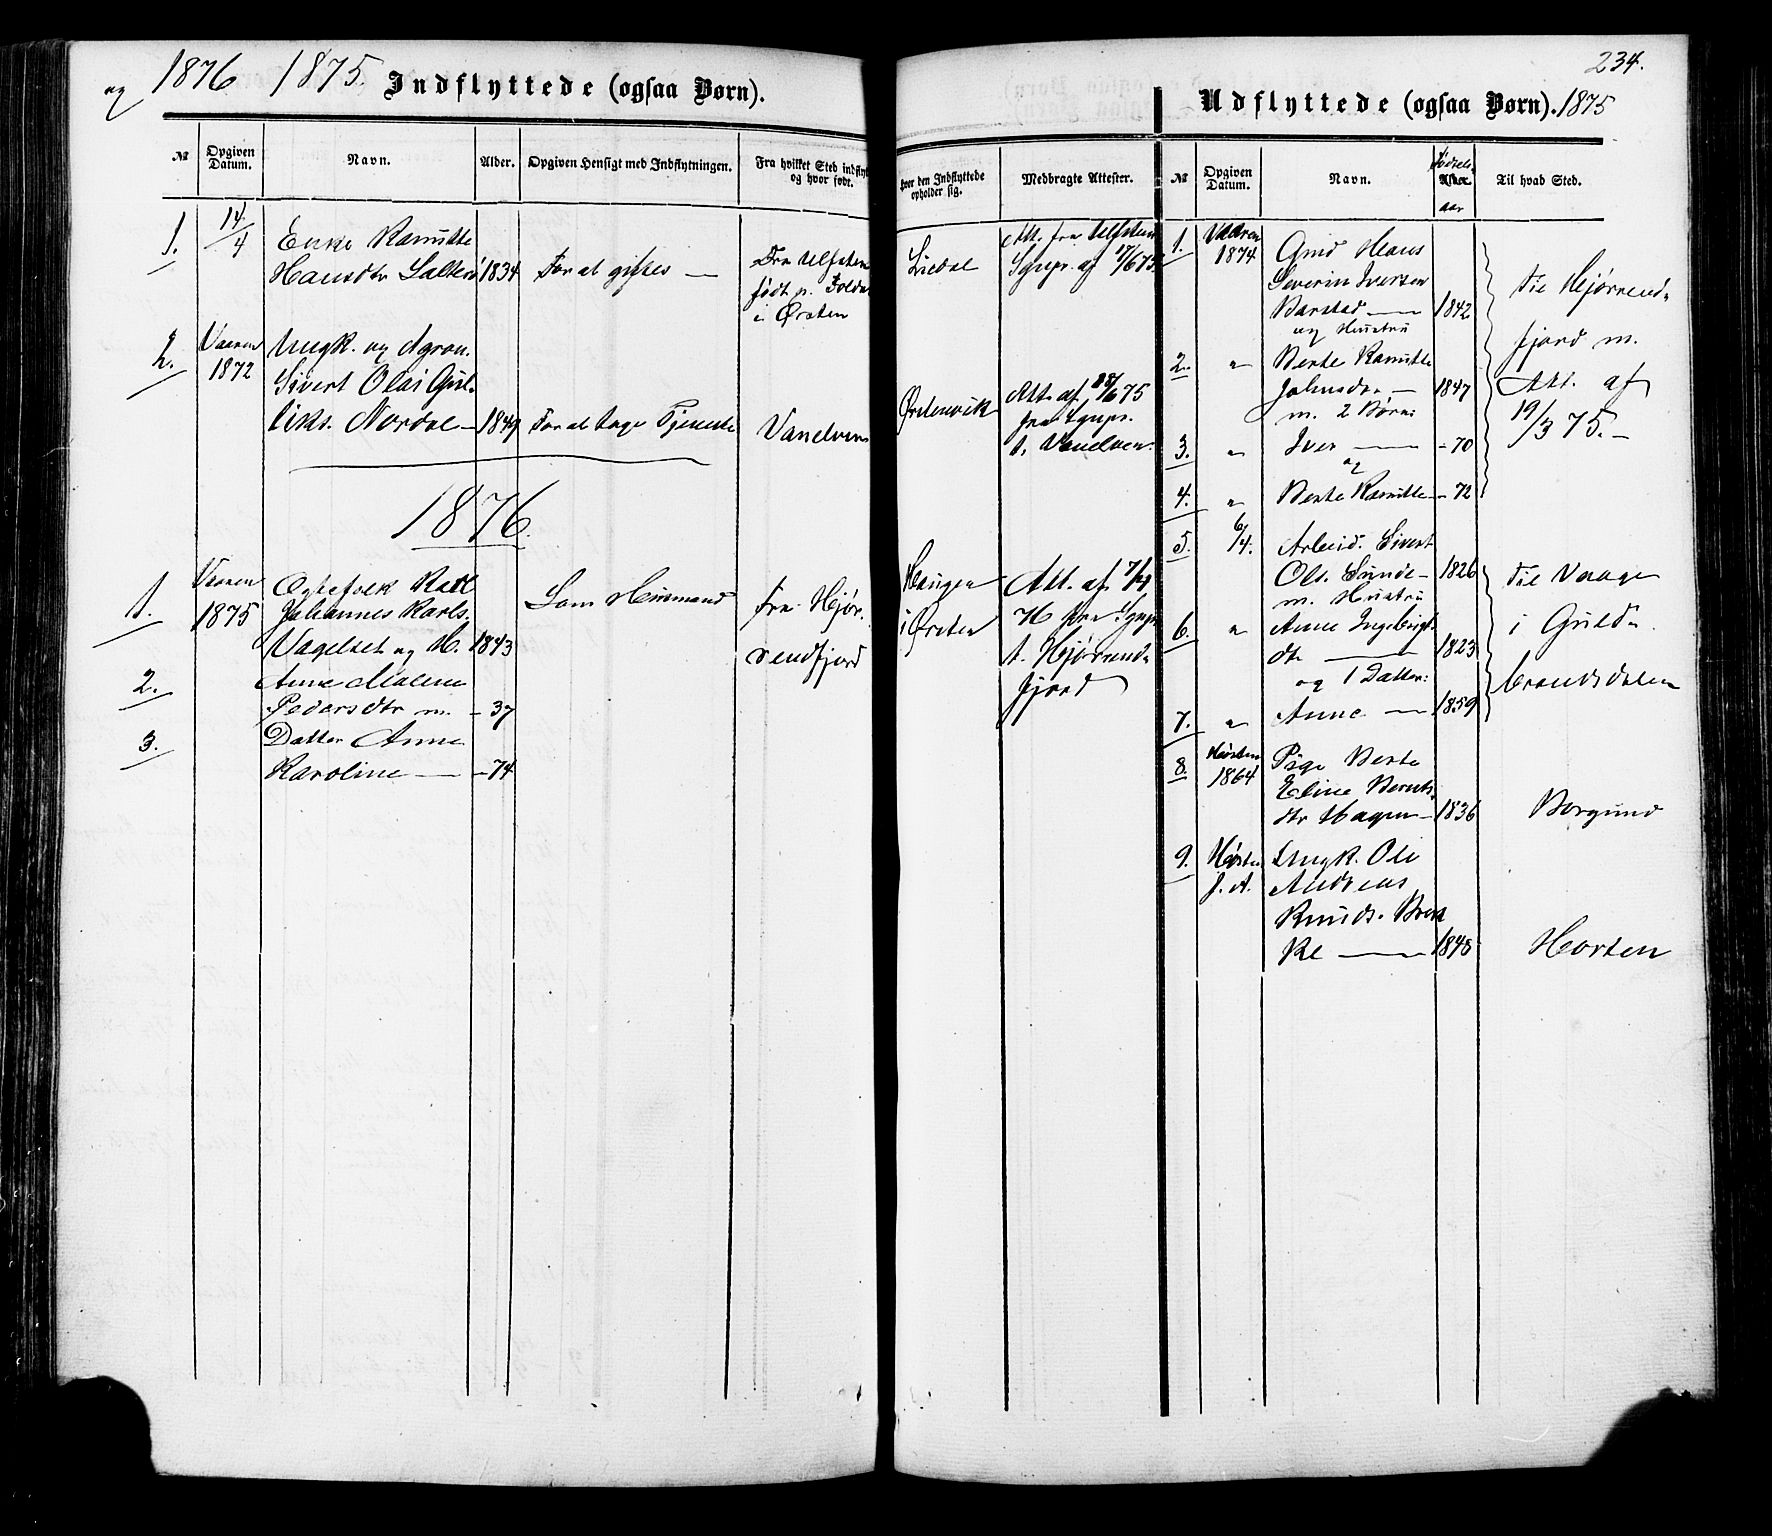 og 1876 1875. Indflyttede (ogsaa Børn).
№
Opgiven Datum.
Navn.
Alder.
Opgiven Hensigt med Indflytningen.
Fra hvilket Sted indflyt
og hvor født.
1.
14/4
Enke Kanutte
Hansdtr 1834
For at giftes —
Fra Ulfsten
født p.
i Ørsten
2.
Vaaren
1872
Ungk. og Agron.
Sivert Olai Gul-
liks. Nordal — 1849
For at tage Tjeneste
Vanelven
1876.
1.
Vaaren
1875
Ægtefolk Karl
Johannes Karls.
og H. 1843
Som Huusmand
fra Hjør-
rendfjord
2.
Anne Malene
Pedersdtr m. - 37
3.
Datter Anne
Karoline — - 74
234.
Udflyttede (ogsaa Børn). 1875
hvor den Indflyttede
opholder sig.
Medbragte Attester.
№
Opgiven
Datum.
Navn.
Fødsels
Alder
aar
Til hvad Sted.
Liedal
Att. fra Ulfsten
Sgnpr. af 17/6 75.
Ørstenvik
Att. af /6 75
fra Sgnpr.
t. Vanelven.
Haugen
i Ørsten
Att. af
fra Sgnpr
t. Hjørrend-
fjord
1.
Vaaren
1874
Gmd Hans
Severin Iversen
Barstad — 1842
og Hustru
til Hjørrend-
fjord m.
Att. af
19/3 75. —
2.
"
Berte Kanutte
Johnsdtr — 1847
m. 2 Børn:
3.
"
Iver — - 70
og
4.
"
Berte Kanutte - 72
5.
6/4.
Arbeid. Sivert
Ols. Sunde — 1826
m. Hustru
til Vaage
i Guld-
brandsdalen
6.
"
Anne Ingebrigts-
dtr — 1823
og 1 Datter:
7.
"
Anne — 1859
8.
Høsten
1864
Pige Berte
Eline Bernts-
dtr Hagen — 1836
Borgund
9.
Høsten
f. A.
Ungk. Ole
Andreas
Knuds.
ke — 1848
Horten